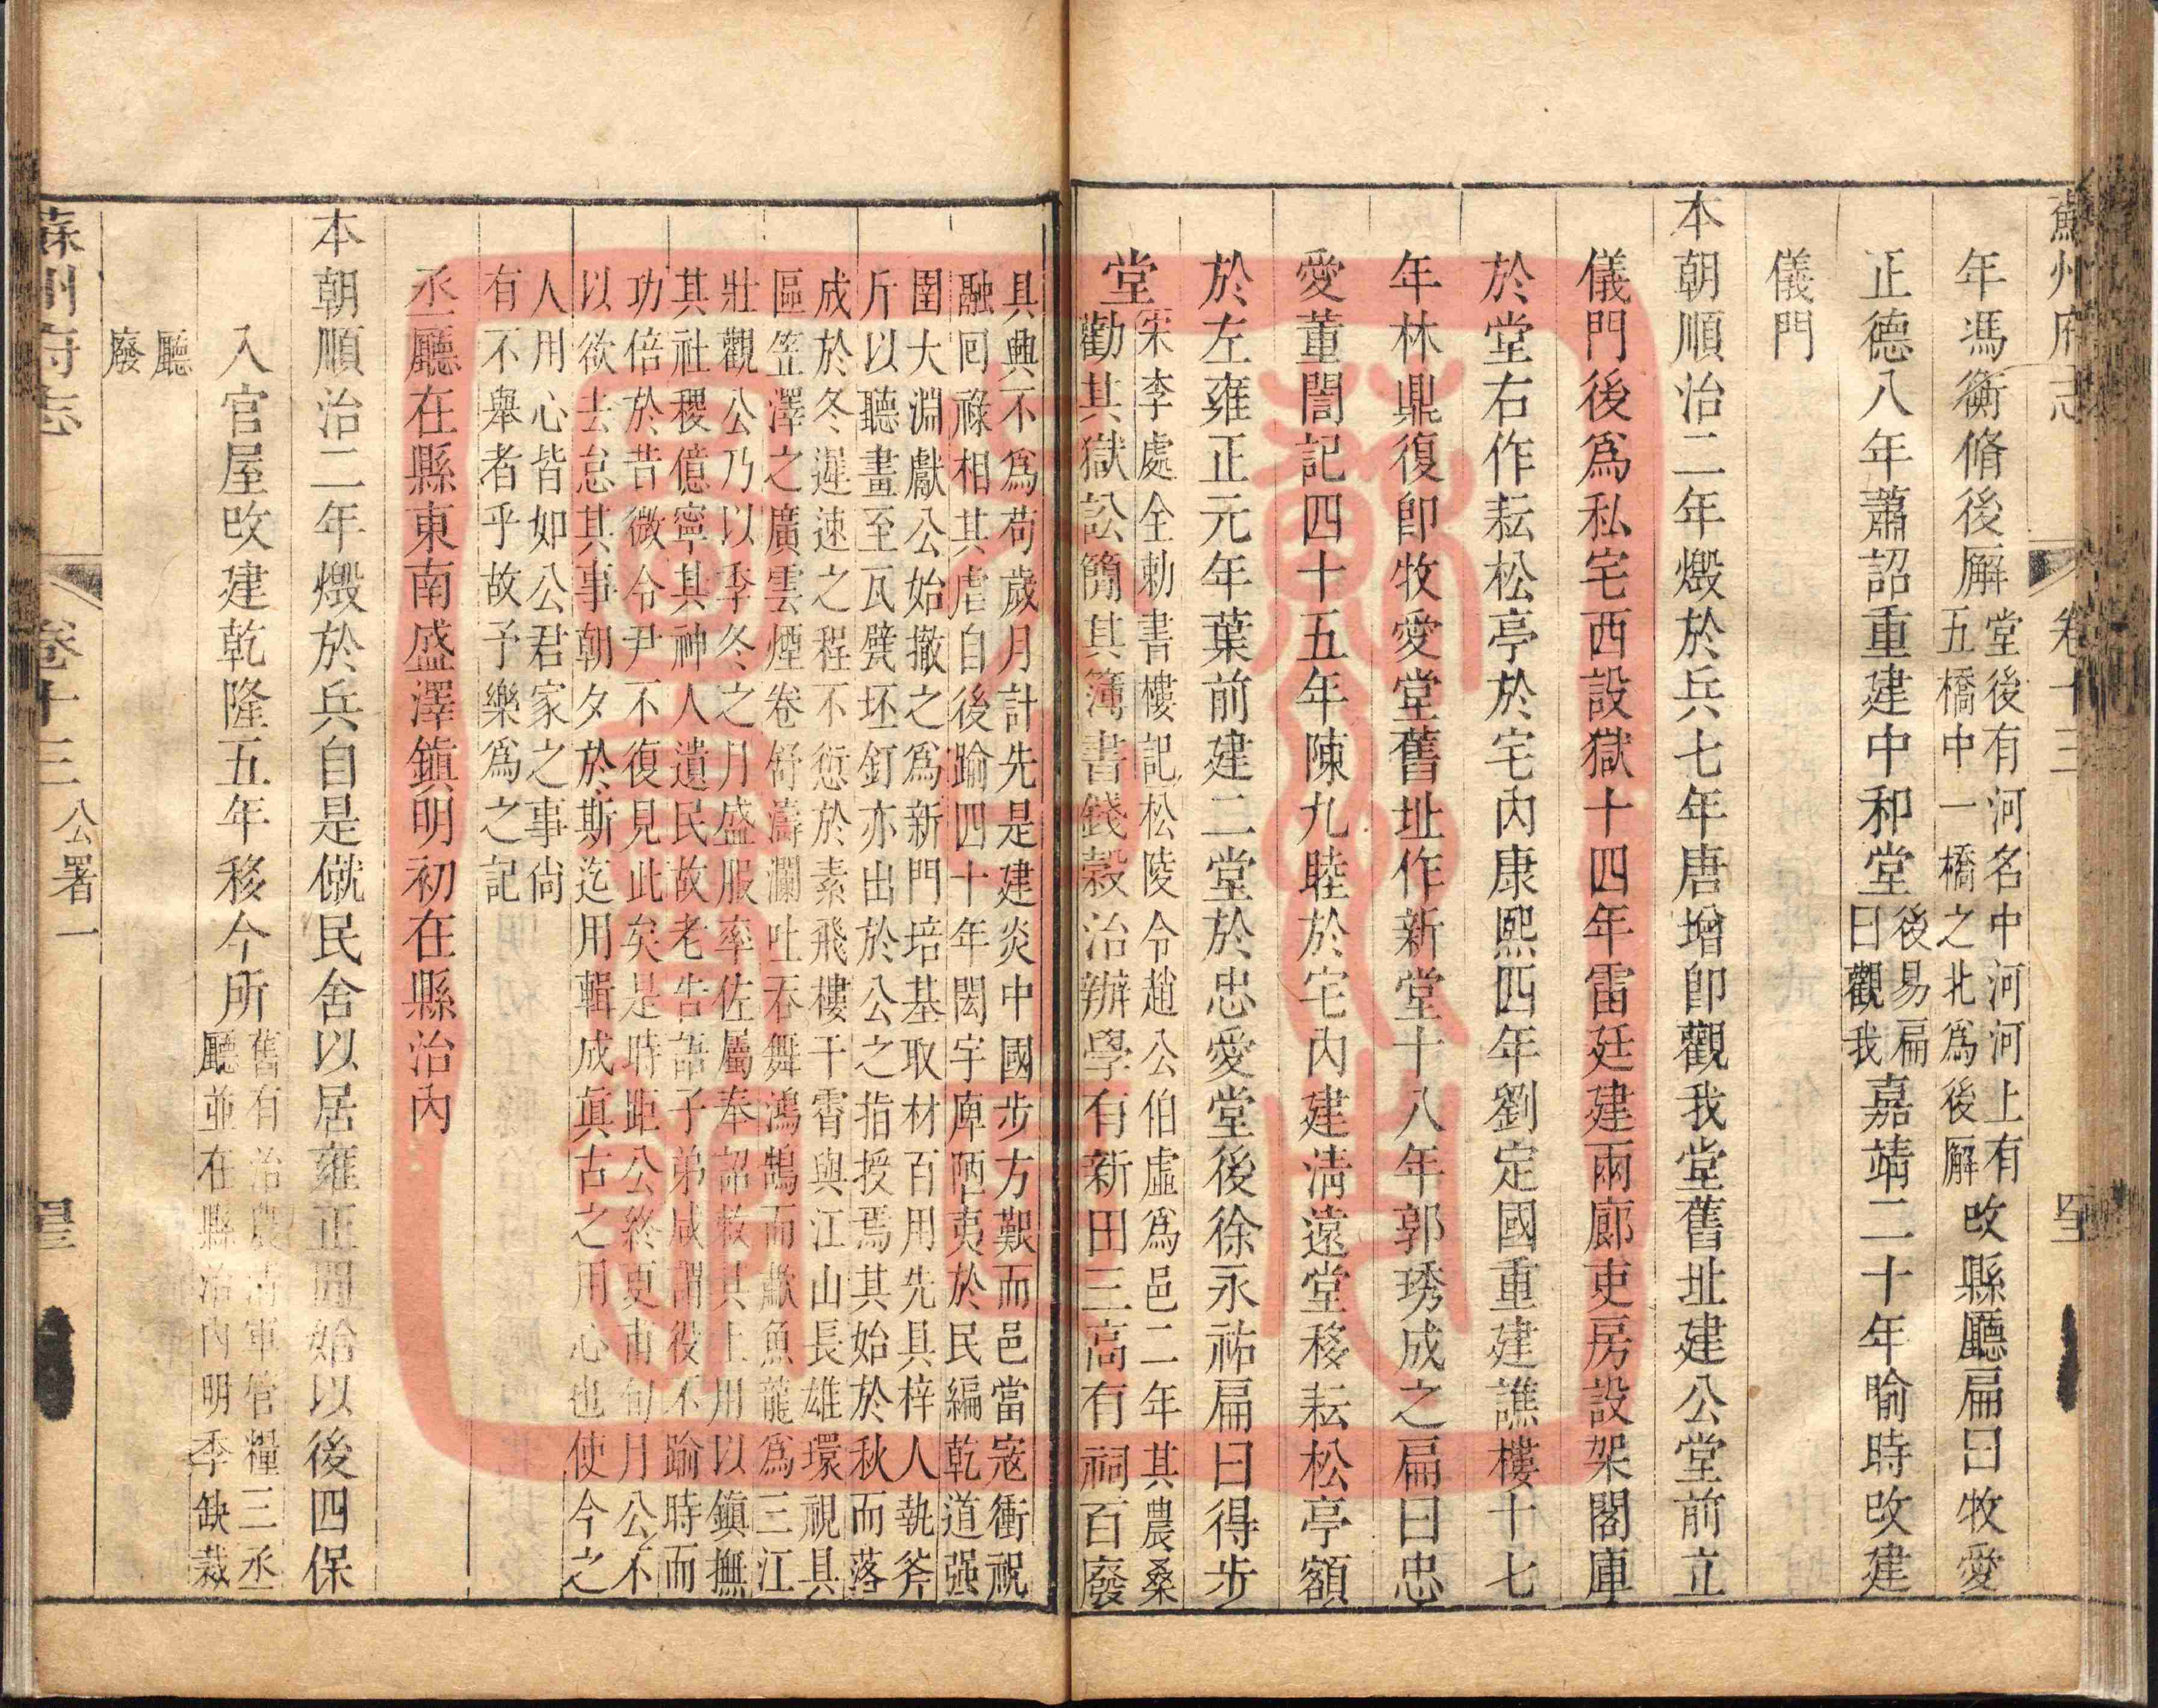 蘇州府志
卷十三
年馮衡脩後廨
堂後有河名中河河上有
五橋中一橋之北為後廨
改縣廳扁曰牧愛
正德八年蕭詔重建中和堂
後易扁
曰觀我
嘉靖二十年喻時改建
儀門
本朝順治二年燬於兵七年唐增卽觀我堂舊址建公堂前立
儀門後爲私宅西設獄十四年雷廷建兩廊吏房設架閣庫
於堂右作耘松亭於宅內康熙四年劉定國重建譙樓十七
年林鼎復卽牧愛堂舊址作新堂十八年郭琇成之扁曰忠
愛董誾記四十五年陳九睦於宅內建淸遠堂移耘松亭額
於左雍正元年葉前建二堂於忠愛堂後徐永祐扁曰得步
堂
宋李處全勅書樓記松陵令趙公伯虛爲邑二年其農桑
勸其獄訟簡其簿書錢穀治辦學有新田三高有祠百廢
具興不爲苟歲月計先是建炎中國步方艱而邑當寇衝祝
融回祿相其虐自後踰四十年閎宇庳陋夷於民編乾道强
圉大淵獻公始撤之爲新門培基取材百用先具梓人執斧
斤以聽畫至瓦甓坯釘亦出於公之指授焉其始於秋而落
成於冬遲速之程不愆於素飛樓干霄與江山長雄環視具
區笠澤之廣雲煙卷舒濤瀾吐吞舞鴻鵠而歕魚龍爲三江
壯觀公乃以季冬之月盛服率佐屬奉詔敕其上用以鎭撫
其社稷億寧其神人遺民故老告語子弟咸謂役不踰時而
功倍於昔微令尹不復見此矣是時距公終更甫旬月公不
以欲去怠其事朝夕於斯迄用輯成眞古之用心也使今之
人用心皆如公君家之事尙
有不舉者乎故予樂爲之記
丞廳在縣東南盛澤鎭明初在縣治內
本朝順治二年燬於兵自是僦民舍以居雍正間始以後四保
入官屋改建乾隆五年移今所
舊有治農淸軍管糧三丞
廳並在縣治內明季缺裁
廳
廢
蘇州府志
卷十三
公署一